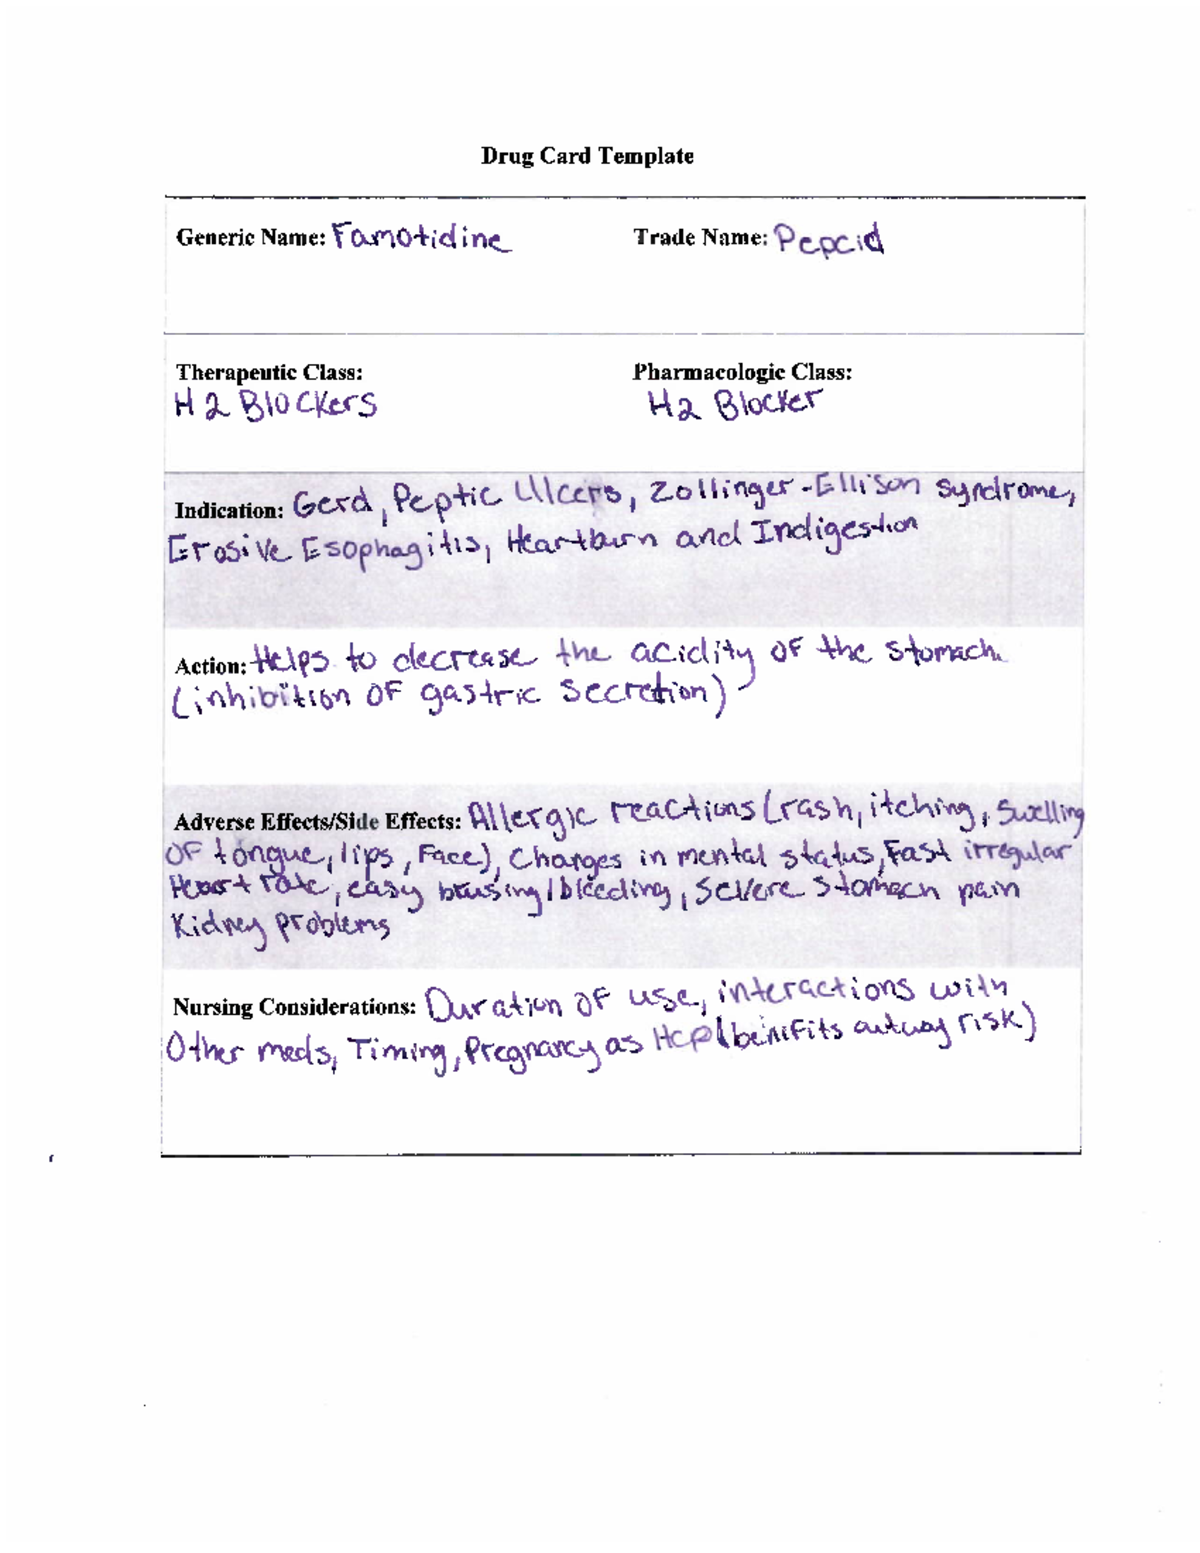 Drug Card Template
Generic Name: Famotidine Trade Name: Pepcid
Therapeutic Class: Pharmacologic Class:
H2 Blockers H2 Blocker
Indication: Gerd, Peptic Ulcers, Zollinger-Ellison syndrome,
Erosive Esophagitis, Heartburn and Indigestion
Action: Helps to decrease the acidity of the stomach.
(inhibition of gastric secretion)
Adverse Effects/Side Effects: Allergic reactions (rash, itching, swelling
of tongue, lips, Face), Changes in mental status, Fast irregular
Heart rate, easy brusing/bleeding, Severe stomach pain
Kidney problems
Nursing Considerations: Duration of use, interactions with
Other meds, Timing, Pregnancy as Hcp (benifits outway risk)